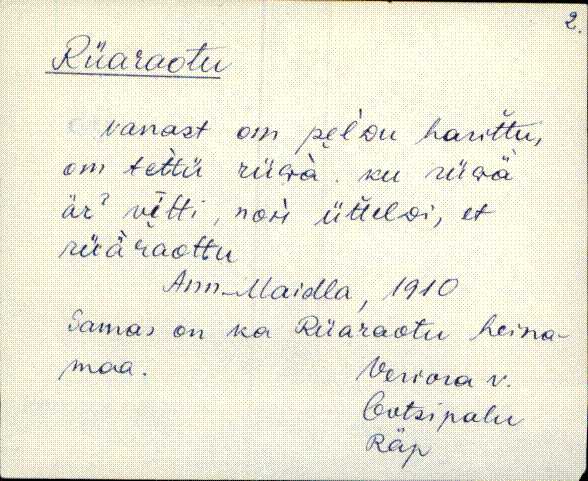 2.
Rüaraotu
vanast om pel'du harittu,
om tettü rüwä. ku rüwä
är' vȫtti, noṡ̀ ütteldi, et
rüäraottu
Ann Maidla, 1910
Samas on ka Rüaraotu heina-
maa.
Veriora v.
Ootsipalu
Räp